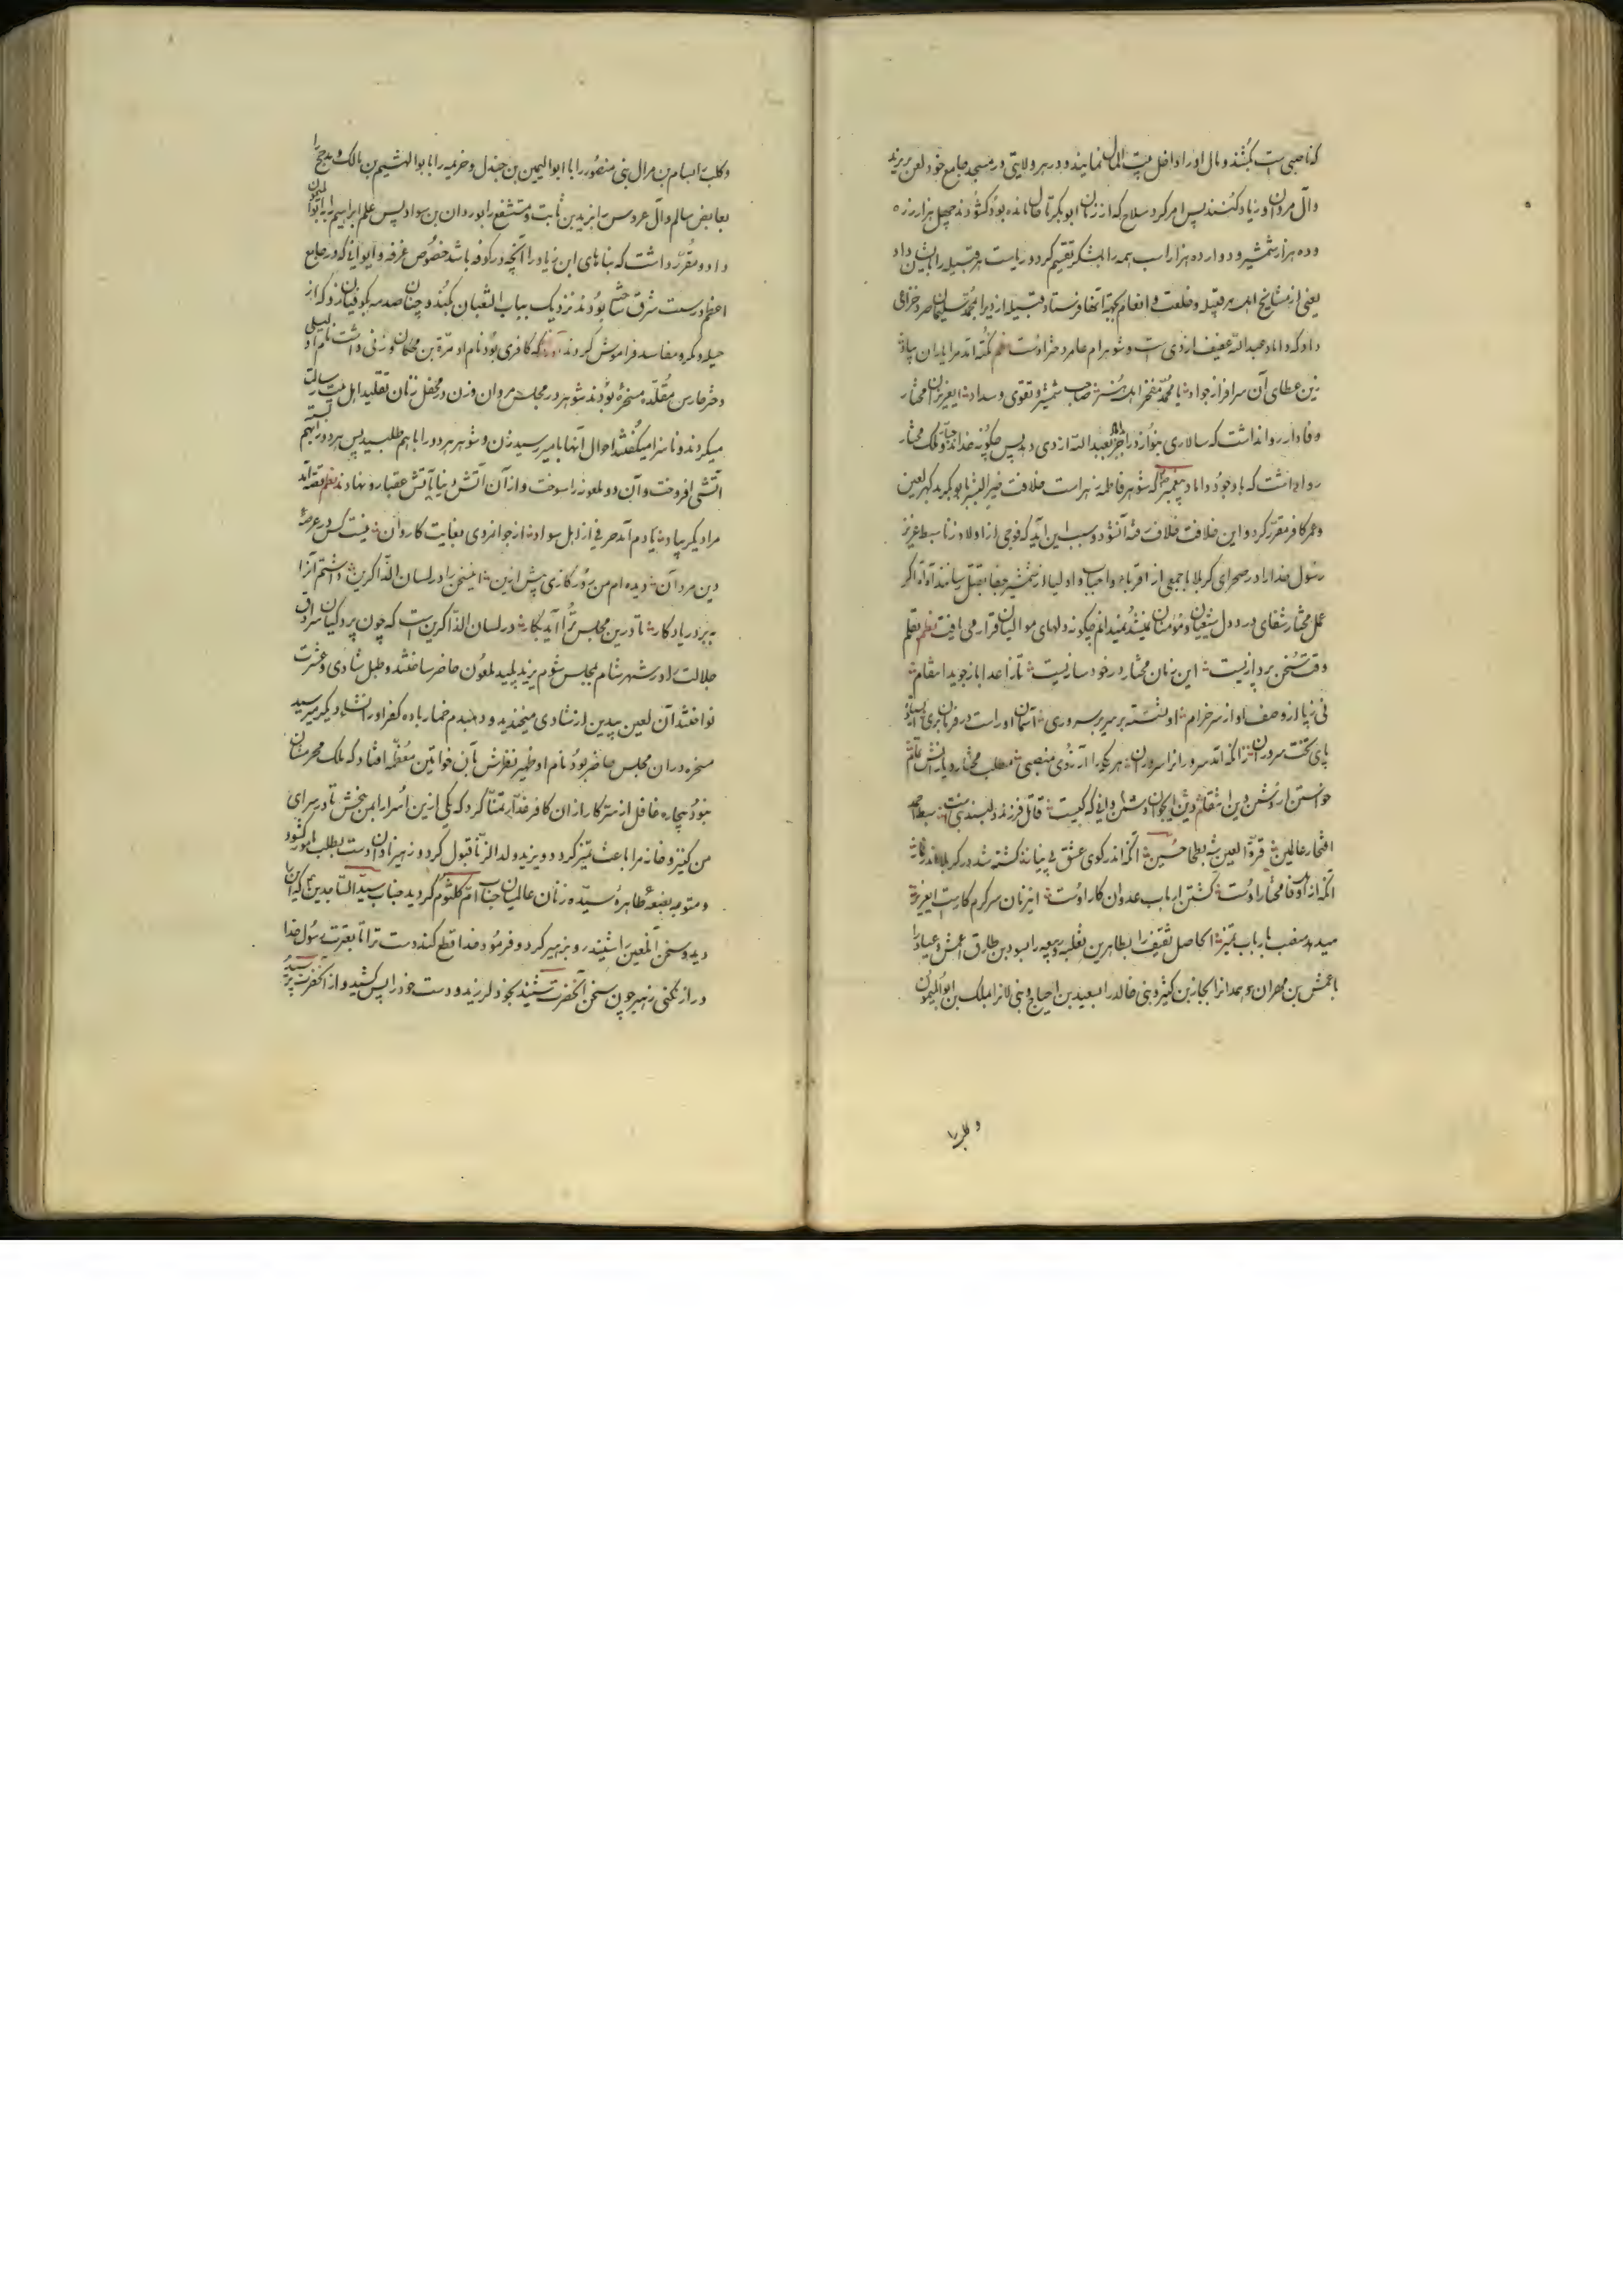 که ناصبی است بکشند و مال او را داخل بیت المال نمایند و در هر ولایتی در مسجد جامع خود لعن بر یزید
و آل مروان و زیاد کنند پس امر کرد سلاح که از زمان ابوبکر تا حال مانده بود کشودند چهل هزار زره
و ده هزار شمشیر و دوازده هزار اسب همه را بلشکر تقسیم کرد و ریاست هر قبیله را بایشان داد
یعنی از مشایخ اهل هر قبیله و خلعت و انعام بجهة آنها فرستاد قبیله ازد را بمحمد سلیمان صرد خزاعی
داد که داماد عبدالله عفیف ازدی است و شوهر ام عامر دختر اوست نظم نکته آمد مرا یاران بیاد
زین عطای آن سرافراز جواد با محمد مفخر اهل هنر صاحب شمشیر و تقوی و سداد ایعزیزان مختار
وفادار روا نداشت که سالاری بنوازد را جز بعبدالله ازدی دهد پس چگونه خداوند و ملک مختار
روا داشت که با وجود داماد پیغمبر که شوهر فاطمه زهراست خلافت خیر البشر بابوبکر بد گهر لعین
و عمر کافر مقرر کرد و این خلافت خلافت فتنه آنشود و سبب این آید که فوجی از اولاد زنا سبط عزیز
رسول خدا را در صحرای کربلا با جمعی از اقرباء و احباب و اولیا از شمشیر جفا بقتل رسانند آه آه اگر
عمل مختار شفای درد دل شیعیان و مؤمنان نمیشد نمیدانم چگونه دلهای موالیان قرار می یافت نظم بقلم
وقت سخن پردازیست این زمان مختار در خود سازیست تا ز اعدا باز جوید انتقام
نی ز پا از وصف او از سر خرام او نشسته بر سریر سروری آسمان او راست در فرمان بری
پای تخت سروران آنکه اند سروران را سروران هر یکی را آرزوی منصبی مطلب مختار و یارانش
خواستن از دشمن دین انتقام دین ایجوان دشمن دانی که کیست قاتل فرزند دلبند نبی است سبط احمد
افتخار عالمین قرة العین بطحا حسین آنکه اندر کوی عشق بی نیاز کشته شد در کربلا اندر نماز
آنکه از اهل وفا مختار اوست کشتن ارباب عدوان کار اوست این زمان سرگرم کارست ایعزیز
میدهد منصب بارباب تمیز الحاصل ثقیف را بطاهر بن ثعلبه و ربیعه را بسود بن طارق اعمش و عباد را
باعمش بن مهران و همدان را بجابر بن کثیر و بنی خالد را بسعید بن احجاج و بنی لازم را بملک بن ابوالیمون
و کلب را
و کلب را بسام بن مرال بنی منصور را با ابوالیمین بن جندل و خزیمه را بابو الهشیم بن مالک و مدحج را
بعابض سالم و آل عروس را بزید بن ثابت و مشفع را بوردان بن سواد پس علم ابراهیم را بابوالیمون
داد و مقرر داشت که بناهای ابن زیاد را آنچه در کوفه باشد خصوص غرفه و ایوانی که در جامع
اعظم در سمت شرق ساخته بودند نزدیک بباب الثعبان بکند و چنان صدمه بکوفیان زد که از
حیله و مکر و مفاسد فراموش کردند آورده اند که کافری بود نام او مرة بن محکان و زنی داشت نام او لیلی
دختر حارس مقلده مسخره بودند شوهر در مجالس مردان و زن در محفل زنان تقلید اهل بیت رسالت
میکردند و ناسزا میگفتند احوال آنها بامیر رسید زن و شوهر هر دو را با هم طلبید پس هر دو را بهم بسته
آتشی افروخت و آن دو ملعونه را سوخت و از آن آتش دنیا بآتش عقبا رو نهادند نظم نقد آمد
مرا دیگر بیاد یادم آمد حرفی از اهل سواد از جوانمردی بغایت کاردان نیست کس در عرصهٔ
دین مرد آن دیده ام من روزگاری پیش ازین این سخن را در لسان الذاکرین داشتم آنرا
بهر در یادگار تا درین مجلس ترا آید بکار در لسان الذاکرین است که چون پردگیان سرادق
جلالت را در شهر شام بمجلس شوم یزید پلید ملعون حاضر ساختند و طبل شادی و عشرت
نواختند آن لعین بیدین از شادی میخندید و دمبدم خمار باده کفر او را نشاء دیگر میرسید
مسخره در آن مجلس حاضر بود نام او ظهیر نظرش بآن خواتین معظمه افتاد که ملک محرمشان
نبود بیچاره غافل از سر کار از آن کافر غدار تمنا کرد که یکی ازین اسرا را بمن بخش تا در سرای
من کنیز و خانه مرا باعث تمیز گردد و یزید ولد الزنا قبول کرد و زهیر نادان دست بطلب امر کشود
و متوجه بضعهٔ طاهره سیده زنان عالمیان جناب ام کلثوم گردید جناب سید الساجدین ع که این را
دید و سخن آن لعین را شنید رو بزهیر کرد و فرمود خدا قطع کند دست ترا تا بعترت رسول خدا
دراز نکنی زهیر چون سخن آنحضرت شنید بخود لرزید و دست خود را پس کشید و از آنحضرت پرسید